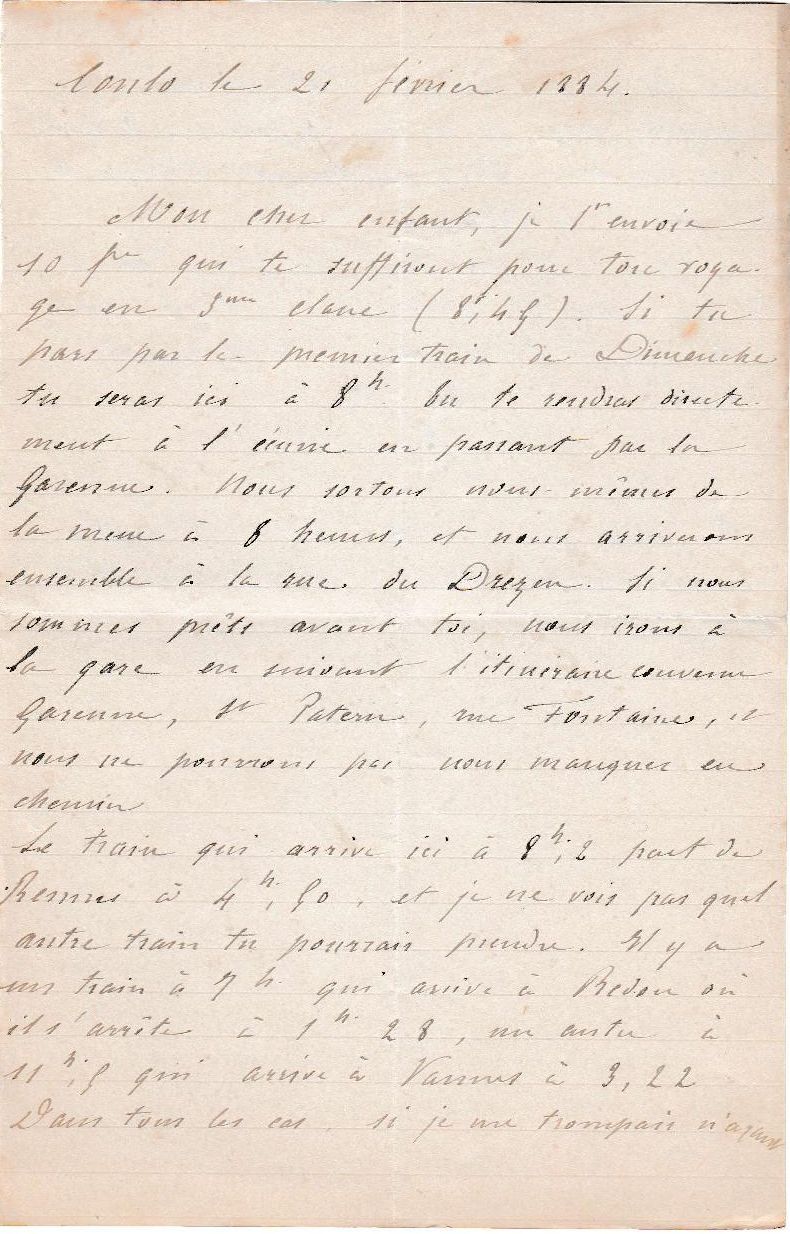 Conlo le 21 février 1884.
Mon cher enfant, je t'envoie
10 frs qui te suffiront pour ton voya-
ge en 3me classe (8f,45). Si tu
pars par le premier train de Dimanche
tu seras ici à 8h. Tu te rendras directe-
ment à l'écurie en passant par la
Garenne. Nous sortons nous-mêmes de
la messe à 8 heures, et nous arriverons
ensemble à la rue du Drezen. Si nous
sommes prêts avant toi, nous irons à
la gare en suivant l'itinéraire convenu
Garenne, St Patern, rue Fontaine, et
nous ne pourrons pas nous manquer en
chemin
Le train qui arrive ici à 8h,2 part de
Rennes à 4h,50, et je ne vois pas quel
autre train tu pourrais prendre. Il y a
un train à 7h qui arrive à Redon où
il s'arrête à 1h 28, un autre à
11h,5 qui arrive à Vannes à 3,22
Dans tous les cas, si je me trompais n'ayant